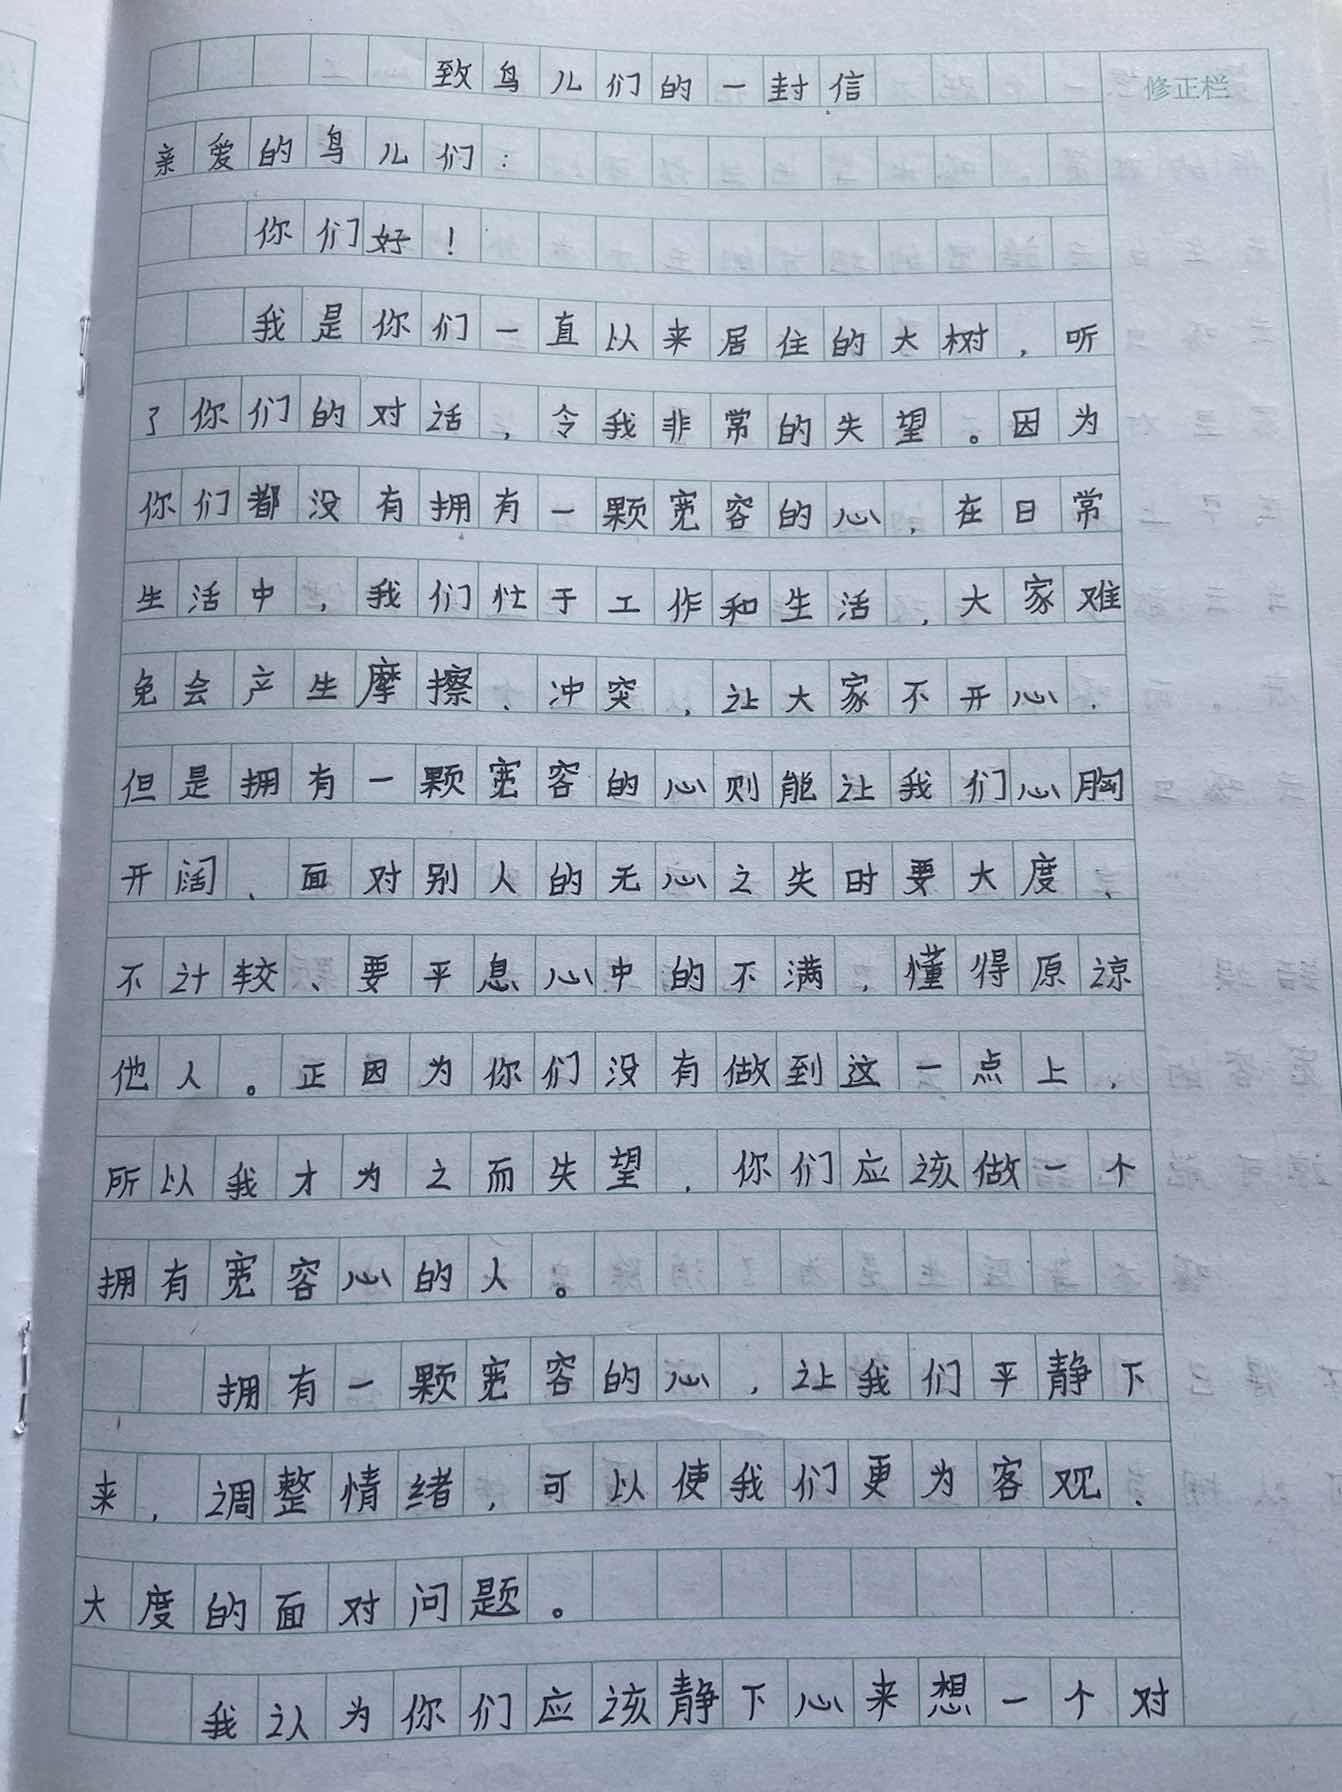 致鸟儿们的一封信
修正栏
亲爱的鸟儿们：
你们好！
我是你们一直以来居住的大树，听
了你们的对话，令我非常的失望。因为
你们都没有拥有一颗宽容的心，在日常
生活中，我们忙于工作和生活，大家难
免会产生摩擦、冲突，让大家不开心．
但是拥有一颗宽容的心则能让我们心胸
开阔、面对别人的无心之失时要大度、
不计较、要平息心中的不满，懂得原谅
他人。正因为你们没有做到这一点上，
所以我才为之而失望．你们应该做一个
拥有宽容心的人。
拥有一颗宽容的心，让我们平静下
来，调整情绪，可以使我们更为客观、
大度的面对问题。
我认为你们应该静下心来想一个对